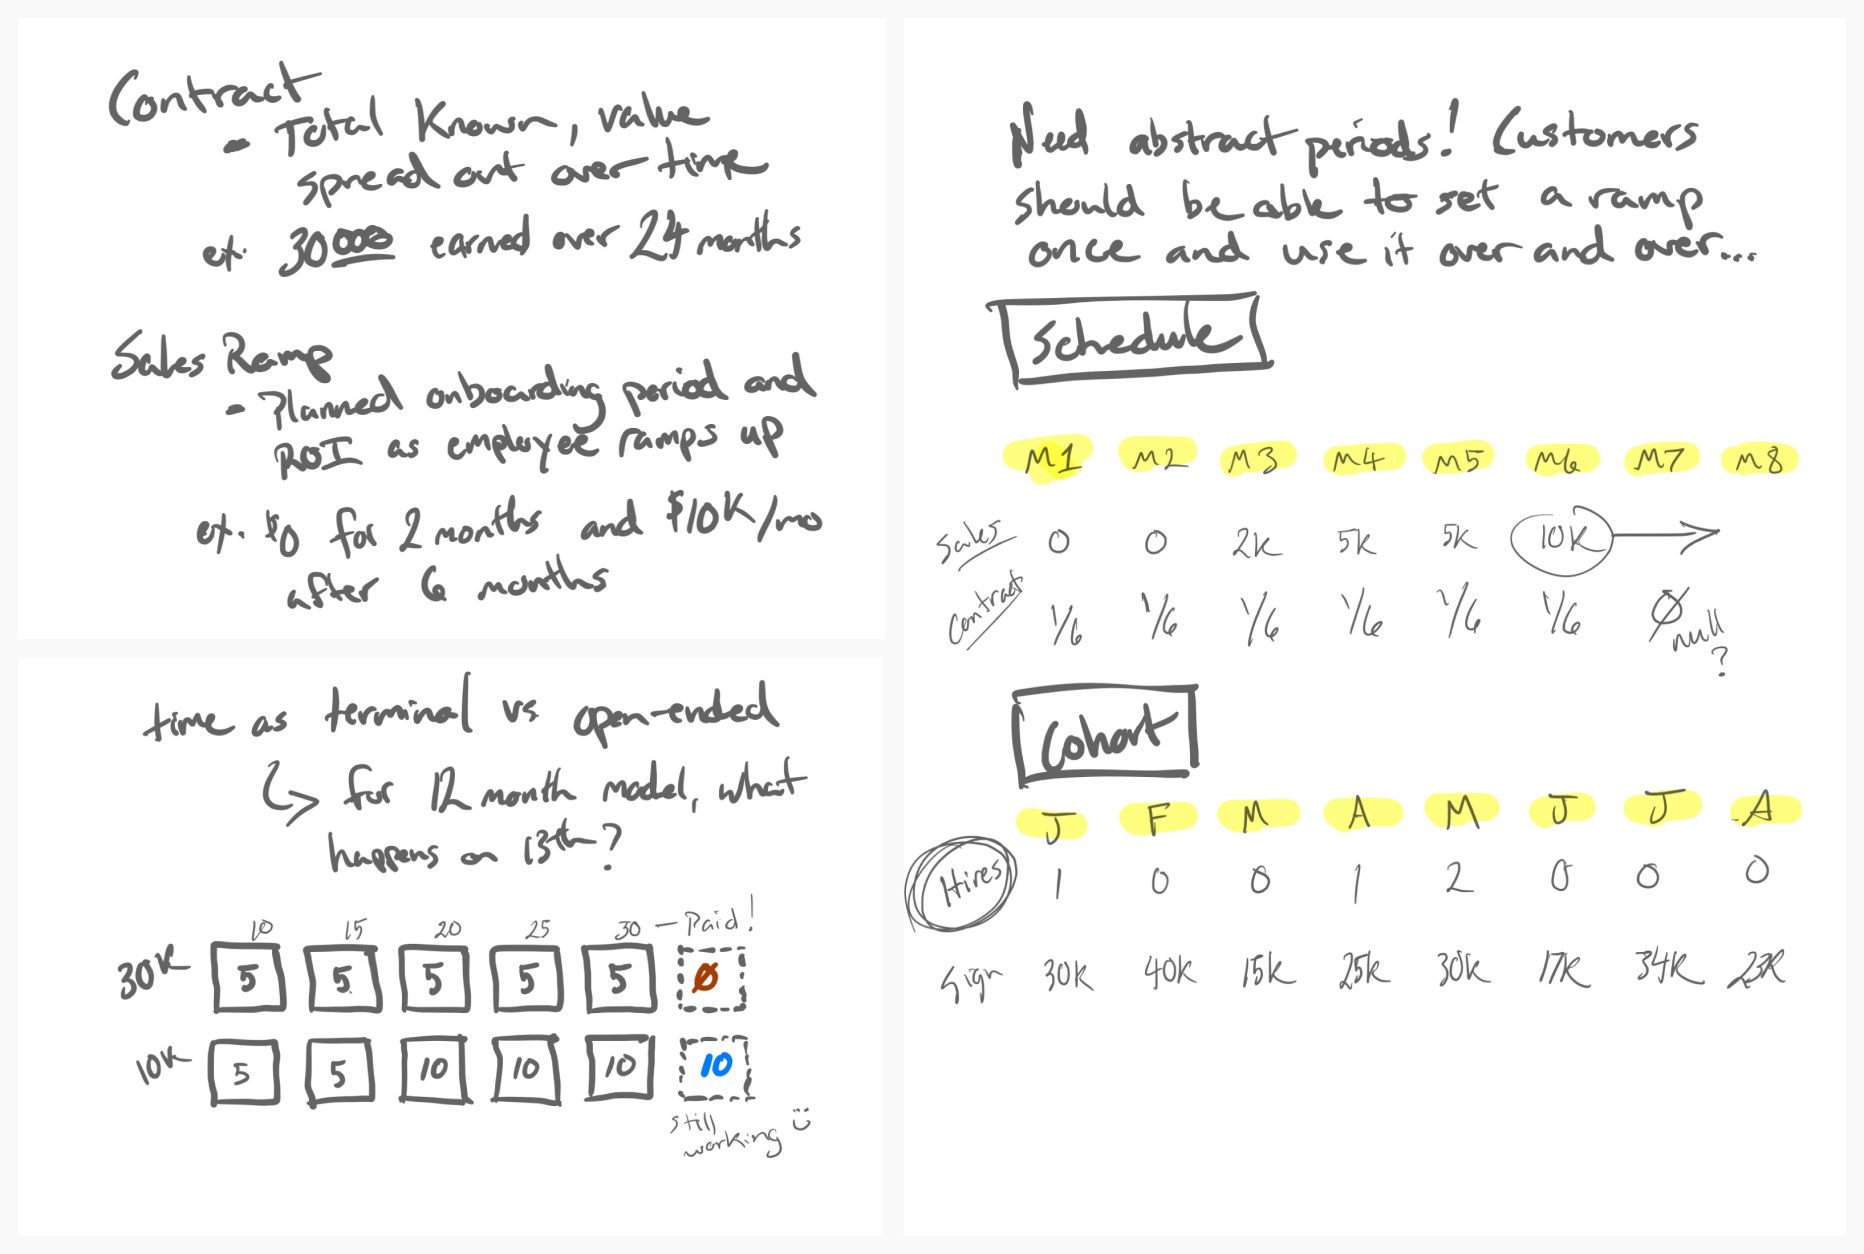 Contract
- Total Known, value
spread out over time
ex. 30000 earned over 24 months
Sales Ramp
- Planned onboarding period and
ROI as employee ramps up
ex. $0 for 2 months and $10K/mo
after 6 months
time as terminal vs open-ended
↳ for 12 month model, what
happens on 13th?
10 15 20 25 30 - Paid!
30K 5 5 5 5 5 Ø
10K 5 5 10 10 10 10
still
working
Need abstract periods! Customers
should be able to set a ramp
once and use it over and over...
Schedule
M1 M2 M3 M4 M5 M6 M7 M8
Sales 0 0 2K 5K 5K 10K →
Contract 1/6 1/6 1/6 1/6 1/6 1/6 Ø null
?
Cohort
J F M A M J J A
Hires 1 0 0 1 2 0 0 0
Sign 30K 40K 15K 25K 30K 17K 34K 23K